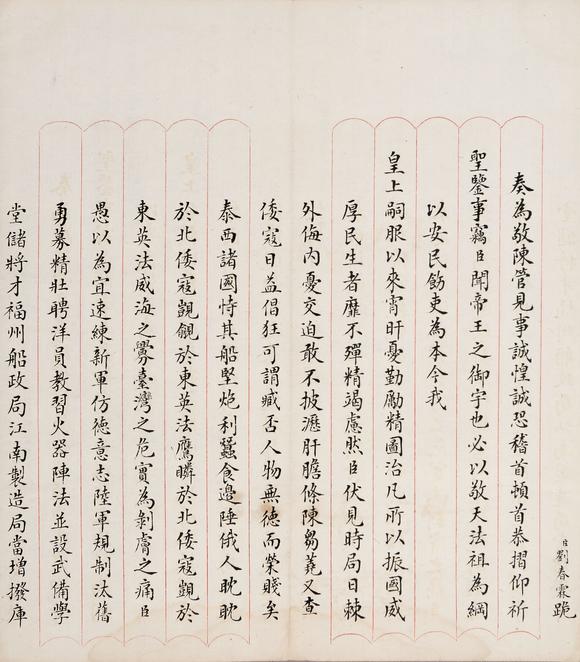 臣劉春霖跪
奏為敬陳管見事誠惶誠恐稽首頓首恭摺仰祈
聖鑒事竊臣聞帝王之御宇也必以敬天法祖為綱
以安民飭吏為本今我
皇上嗣服以來宵旰憂勤勵精圖治凡所以振國威
厚民生者靡不殫精竭慮然臣伏見時局日棘
外侮內憂交迫敢不披瀝肝膽條陳芻蕘又查
倭寇日益倡狂可謂臧否人物無德而榮賤矣
泰西諸國恃其船堅炮利蠶食邊陲俄人眈眈
於北倭寇覬覦於東英法鷹瞵於北倭寇覬於
東英法威海之釁臺灣之危實為剝膚之痛臣
愚以為宜速練新軍仿德意志陸軍規制汰舊
勇募精壯聘洋員教習火器陣法並設武備學
堂儲將才福州船政局江南製造局當增撥庫